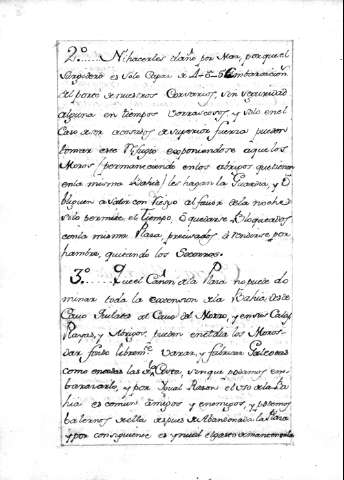 2.º Ni hacerles daño por Mar, porque el
Surgidero es solo capaz de 4-5-6 Embarcación
del porte de nuestros Corsarios, sin seguridad
alguna en tiempos borrascosos, y solo en el
Caso de ser acosados de superior fuerza pueden
tomar este Refugio exponiendose a que los
Moros (permaneciendo en los abrigos que tienen
en la misma Bahia) les hagan la Guardia, y
obliguen a salir con riesgo al favor de la noche
si lo permite el Tiempo, ó quedarse Bloqueados
con la misma Plaza, precisados á rendirse por
hambre, quitando los Socorros.
3.º Que el Cañon de la Plaza no puede do
minar toda la extension de la Bahia desde
Cavo Quilates al Cavo del Morro, y en sus Calas
Playas, y Abrigos, pueden en ella los Moros
dar fondo librem.te Varar, y fabricar Galeotas
como en todas las de la Costa, sin que podamos em-
barazarlo, y por Igual Razon el uso de la Ba
hia es comun á amigos, y enemigos, y podemos
valernos de ella despues de Abandonada la Plaza
y por consiguiente es ynutil el gasto de mantenerla